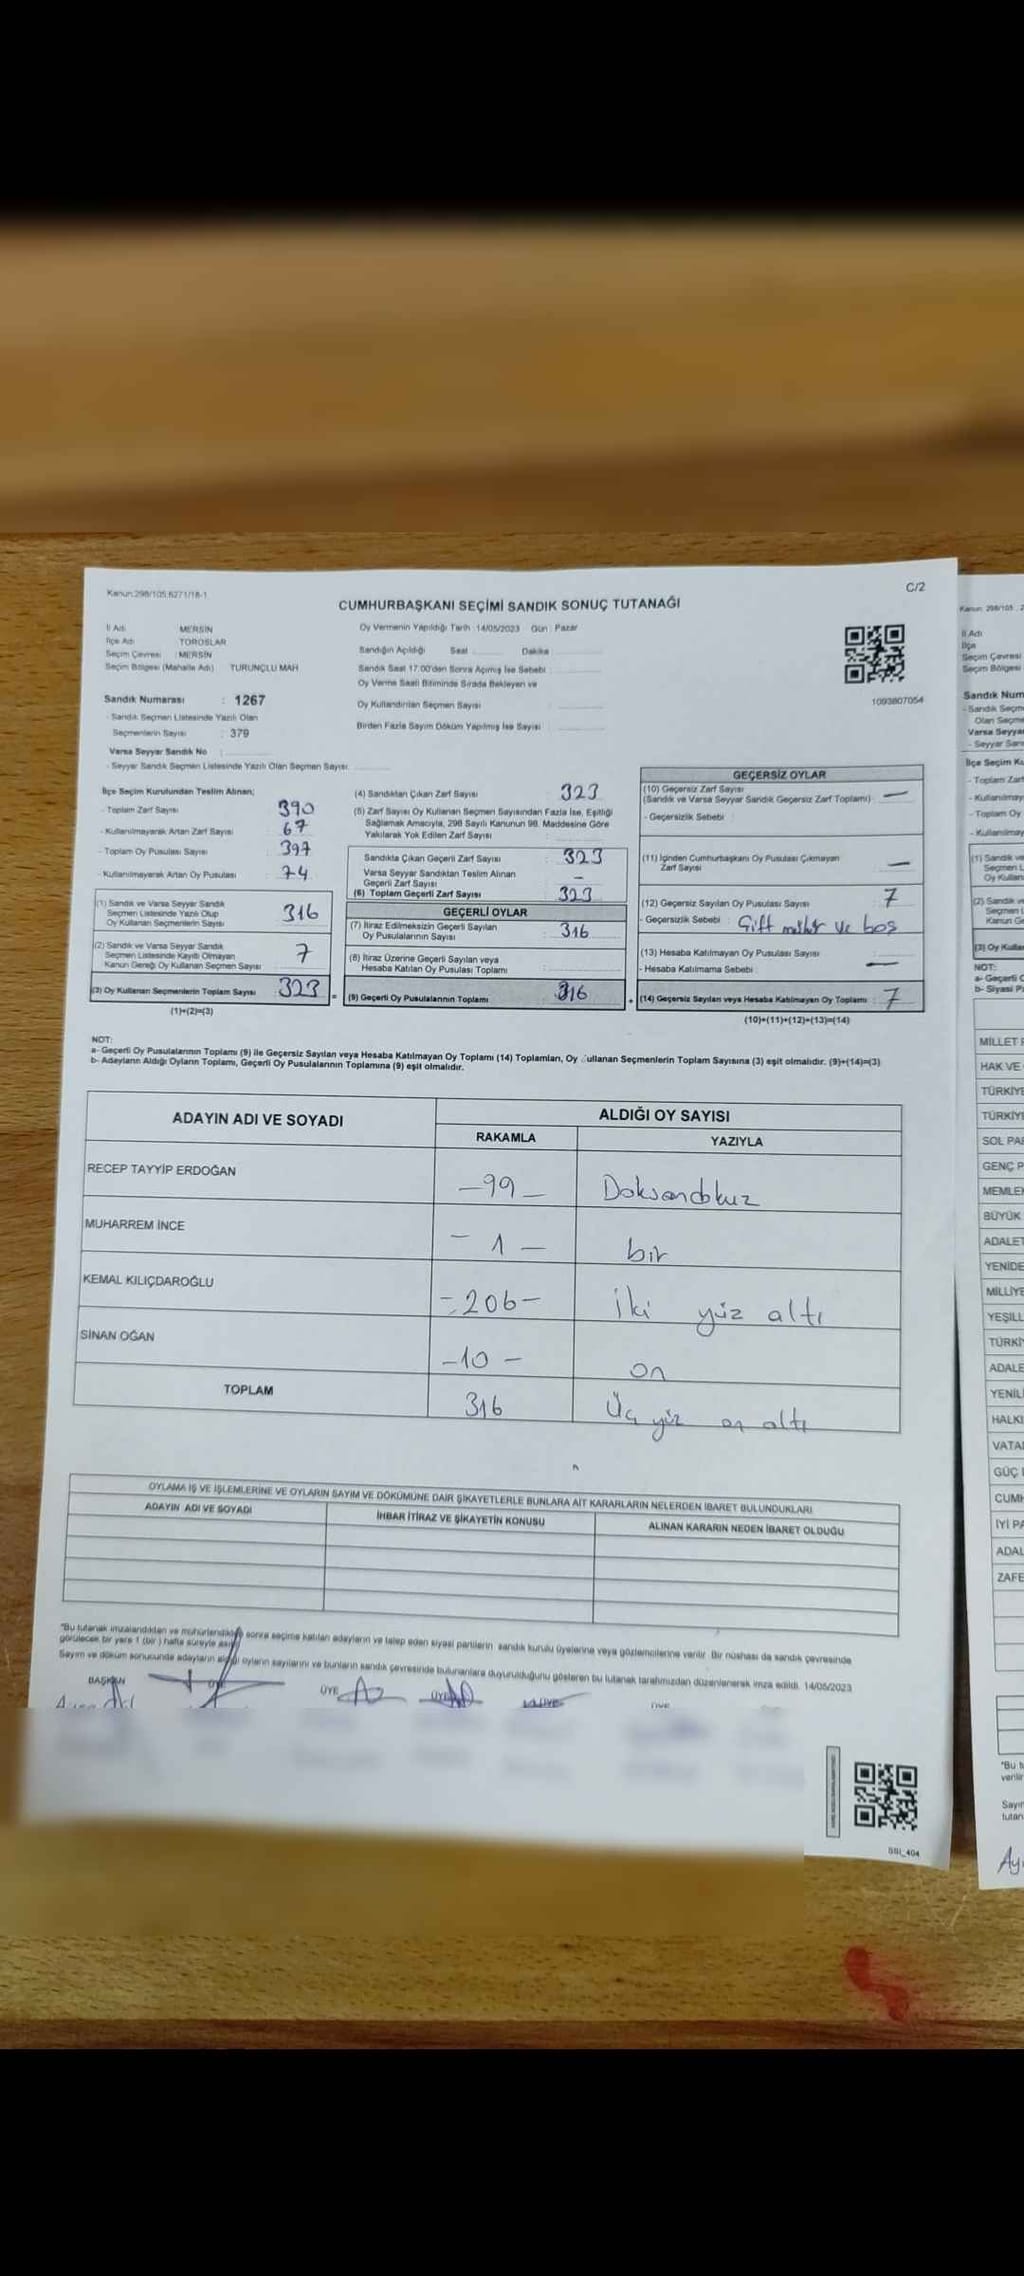 Kanun:298/105,6271/18-1
C/2
CUMHURBAŞKANI SEÇİMİ SANDIK SONUÇ TUTANAĞI
İl Adı : MERSİN
İlçe Adı : TOROSLAR
Seçim Çevresi : MERSİN
Seçim Bölgesi (Mahalle Adı) TURUNÇLU MAH
Sandık Numarası : 1267
- Sandık Seçmen Listesinde Yazılı Olan
Seçmenlerin Sayısı : 379
Varsa Seyyar Sandık No :
- Seyyar Sandık Seçmen Listesinde Yazılı Olan Seçmen Sayısı
Oy Vermenin Yapıldığı Tarih : 14/05/2023 Gün : Pazar
Sandığın Açıldığı Saat Dakika
Sandık Saat 17.00'den Sonra Açılmış İse Sebebi :
Oy Verme Saati Bitiminde Sırada Bekleyen ve
Oy Kullandırılan Seçmen Sayısı
Birden Fazla Sayım Döküm Yapılmış İse Sayısı :
1093807054
İlçe Seçim Kurulundan Teslim Alınan;
- Toplam Zarf Sayısı : 390
- Kullanılmayarak Artan Zarf Sayısı : 67
- Toplam Oy Pusulası Sayısı : 397
- Kullanılmayarak Artan Oy Pusulası : 74
(1) Sandık ve Varsa Seyyar Sandık
Seçmen Listesinde Yazılı Olup
Oy Kullanan Seçmenlerin Sayısı : 316
(2) Sandık ve Varsa Seyyar Sandık
Seçmen Listesinde Kayıtlı Olmayan
Kanun Gereği Oy Kullanan Seçmen Sayısı : 7
(3) Oy Kullanan Seçmenlerin Toplam Sayısı : 323
(1)+(2)=(3)
(4) Sandıktan Çıkan Zarf Sayısı : 323
(5) Zarf Sayısı Oy Kullanan Seçmen Sayısından Fazla İse, Eşitliği
Sağlamak Amacıyla, 298 Sayılı Kanunun 98. Maddesine Göre
Yakılarak Yok Edilen Zarf Sayısı
Sandıkta Çıkan Geçerli Zarf Sayısı : 323
Varsa Seyyar Sandıktan Teslim Alınan
Geçerli Zarf Sayısı : -
(6) Toplam Geçerli Zarf Sayısı : 323
GEÇERLİ OYLAR
(7) İtiraz Edilmeksizin Geçerli Sayılan
Oy Pusulalarının Sayısı : 316
(8) İtiraz Üzerine Geçerli Sayılan veya
Hesaba Katılan Oy Pusulası Toplamı
(9) Geçerli Oy Pusulalarının Toplamı : 316
GEÇERSİZ OYLAR
(10) Geçersiz Zarf Sayısı
(Sandık ve Varsa Seyyar Sandık Geçersiz Zarf Toplamı) : —
- Geçersizlik Sebebi :
(11) İçinden Cumhurbaşkanı Oy Pusulası Çıkmayan
Zarf Sayısı : —
(12) Geçersiz Sayılan Oy Pusulası Sayısı : 7
- Geçersizlik Sebebi : Çift mühür ve boş
(13) Hesaba Katılmayan Oy Pusulası Sayısı :
- Hesaba Katılmama Sebebi : —
(14) Geçersiz Sayılan veya Hesaba Katılmayan Oy Toplamı : 7
(10)+(11)+(12)+(13)=(14)
NOT:
a- Geçerli Oy Pusulalarının Toplamı (9) ile Geçersiz Sayılan veya Hesaba Katılmayan Oy Toplamı (14) Toplamları, Oy Kullanan Seçmenlerin Toplam Sayısına (3) eşit olmalıdır. (9)+(14)=(3)
b- Adayların Aldığı Oyların Toplamı, Geçerli Oy Pusulalarının Toplamına (9) eşit olmalıdır.
ADAYIN ADI VE SOYADI
ALDIĞI OY SAYISI
RAKAMLA YAZIYLA
RECEP TAYYİP ERDOĞAN -99- Doksandokuz
MUHARREM İNCE - 1 - bir
KEMAL KILIÇDAROĞLU -206- iki yüz altı
SİNAN OĞAN -10- on
TOPLAM 316 Üç yüz on altı
OYLAMA İŞ VE İŞLEMLERİNE VE OYLARIN SAYIM VE DÖKÜMÜNE DAİR ŞİKAYETLERLE BUNLARA AİT KARARLARIN NELERDEN İBARET BULUNDUKLARI
ADAYIN ADI VE SOYADI İHBAR İTİRAZ VE ŞİKAYETİN KONUSU ALINAN KARARIN NEDEN İBARET OLDUĞU
"Bu tutanak imzalandıktan ve mühürlendikten sonra seçime katılan adayların ve talep eden siyasi partilerin sandık kurulu üyelerine veya gözlemcilerine verilir. Bir nüshası da sandık çevresinde
görülecek bir yere 1 (bir) hafta süreyle asılır.
Sayım ve döküm sonucunda adayların aldığı oyların sayılarını ve bunların sandık çevresinde bulunanlara duyurulduğunu gösteren bu tutanak tarafımızdan düzenlenerek imza edildi. 14/05/2023
BAŞKAN ÜYE ÜYE ÜYE
SSI_404
İl Adı
İlçe
Seçim Çevresi
Seçim Bölgesi
Sandık Num
- Sandık Seçm
Olan Seçme
Varsa Seyya
- Seyyar San
İlçe Seçim Ku
- Toplam Zarf
- Kullanılmaya
- Toplam Oy
- Kullanılmay
(1) Sandık ve
Seçmen L
Oy Kullan
(2) Sandık ve
Seçmen L
Kanun G
(3) Oy Kulla
NOT:
a- Geçerli O
b- Siyasi P
MİLLET P
HAK VE
TÜRKİYE
TÜRKİYE
SOL PAR
GENÇ P
MEMLEK
BÜYÜK
ADALET
YENİDE
MİLLİYE
YEŞİLL
TÜRKİY
ADALE
YENİL
HALKI
VATAN
GÜÇ
CUMH
İYİ PA
ADAL
ZAFE
"Bu tu
verilir
Sayım
tutan